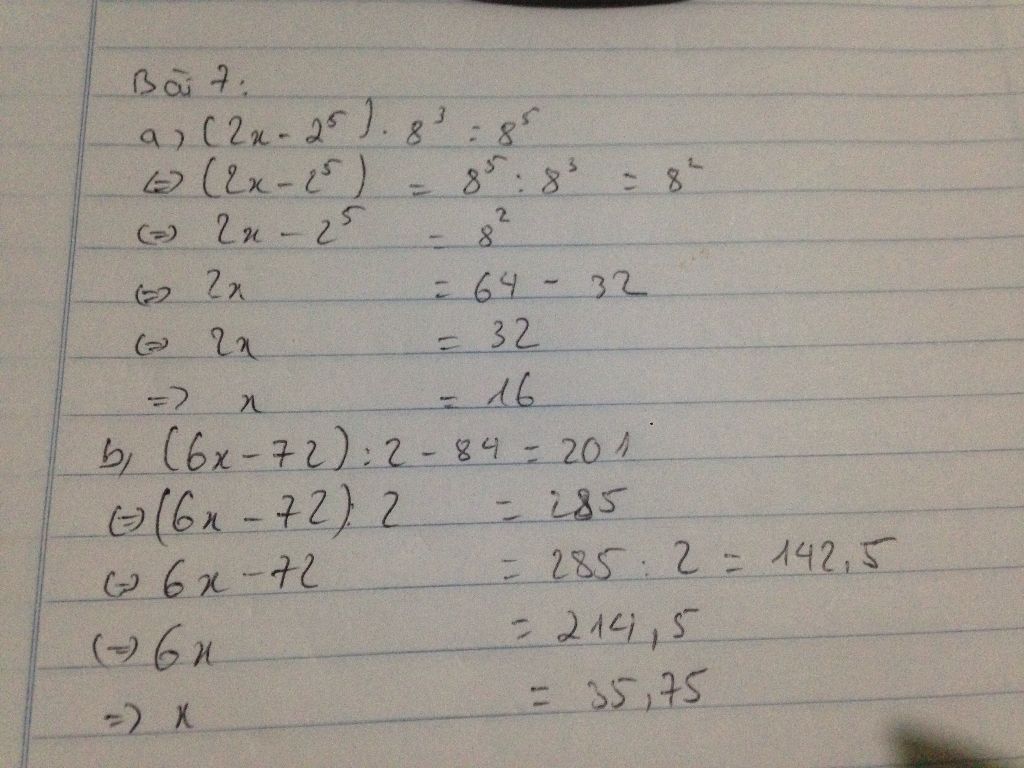 Bài 7:
a, (2x - 2⁵) . 8³ = 8⁵
<=> (2x - 2⁵) = 8⁵ : 8³ = 8²
<=> 2x - 2⁵ = 8²
<=> 2x = 64 - 32
<=> 2x = 32
=> x = 16
b, (6x - 72) : 2 - 84 = 201
<=> (6x - 72) : 2 = 285
<=> 6x - 72 = 285 : 2 = 142,5
<=> 6x = 214,5
=> x = 35,75